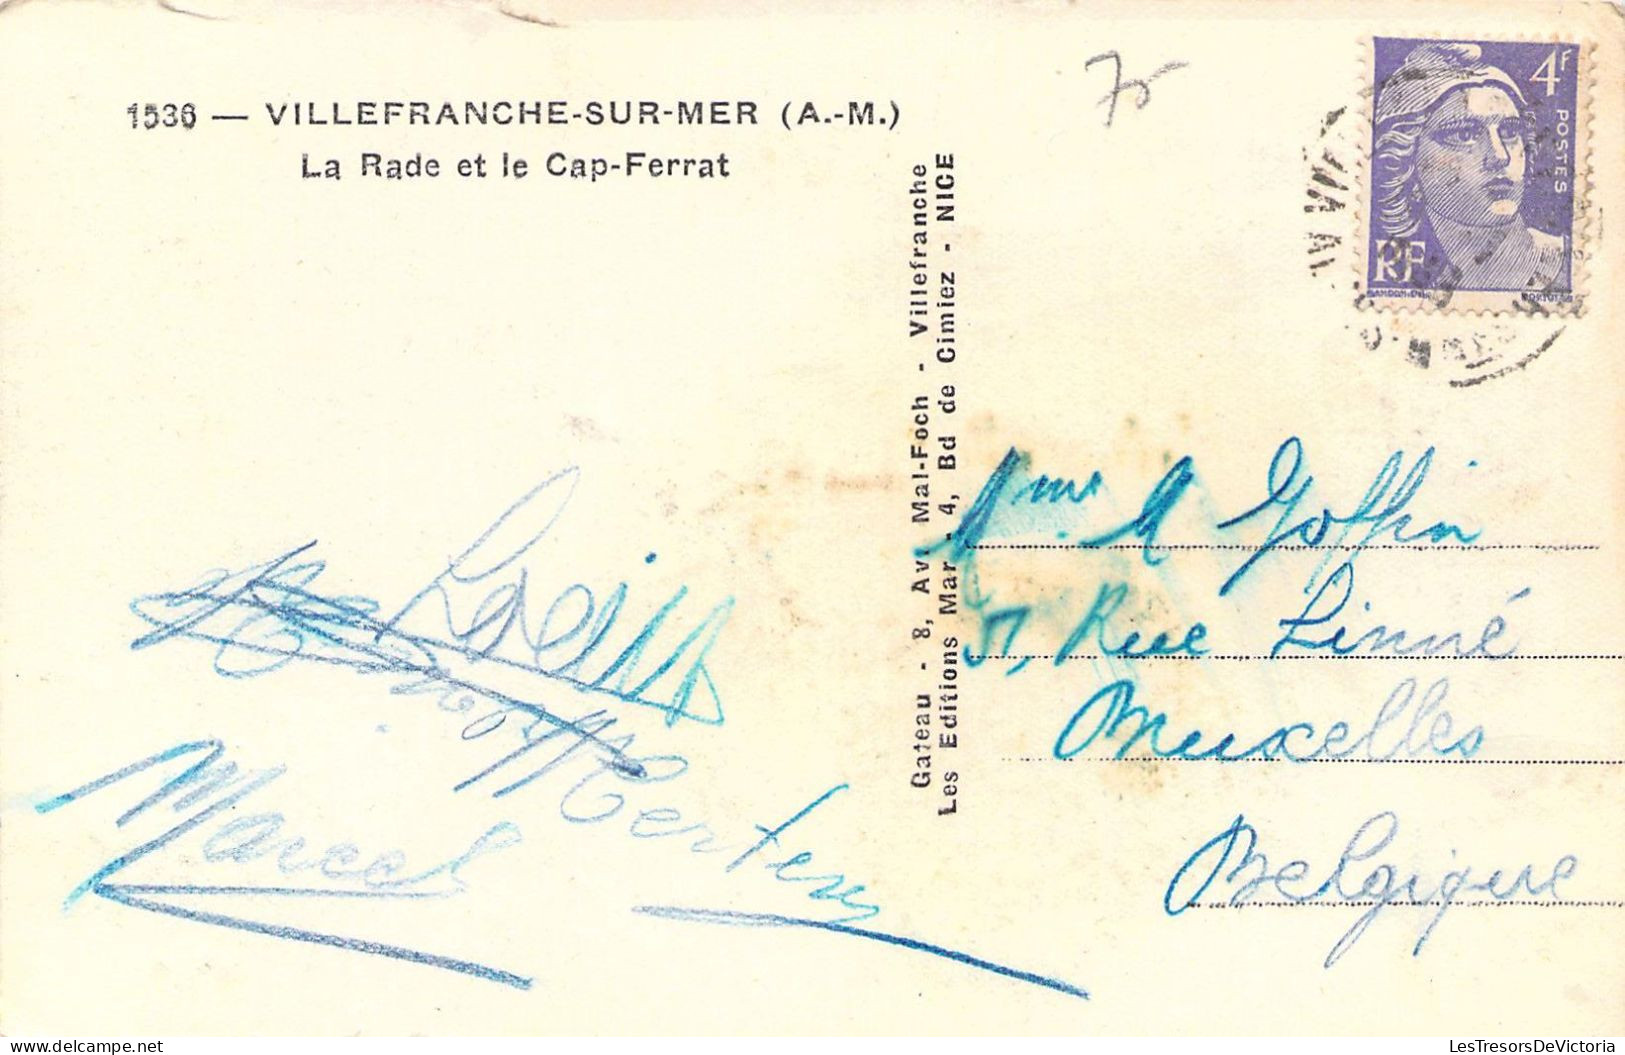 1536 — VILLEFRANCHE-SUR-MER (A.-M.)
La Rade et le Cap-Ferrat
Gateau - 8, Av. Mal-Foch - Villefranche
Les Editions Mar - 4, Bd de Cimiez - NICE
75
4F
POSTES
RF
Mme M Goffin
51, Rue Linné
Bruxelles
Belgique
Mertens
Marcel
delcampe.net
LesTresorsDeVictoria